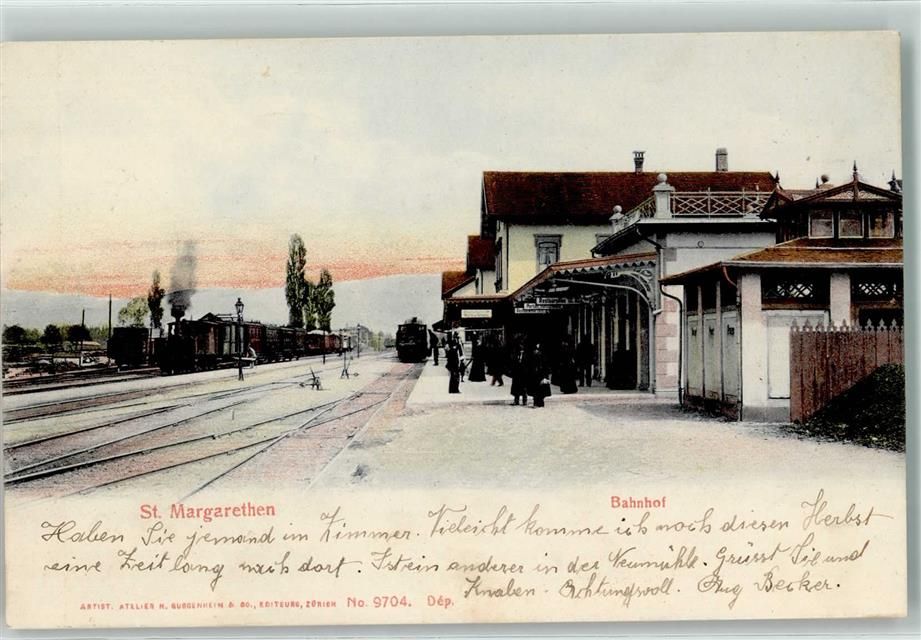 St. Margarethen
Bahnhof
Haben Sie jemand im Zimmer. Vieleicht komme ich noch diesen Herbst
eine Zeit lang nach dort. Ist ein anderer in der Neumühle. Grüsst Sie und
Knaben. Achtungsvoll. Aug Becker.
ARTIST. ATELIER H. GUGGENHEIM & CO., EDITEURS, ZÜRICH No. 9704. Dép.